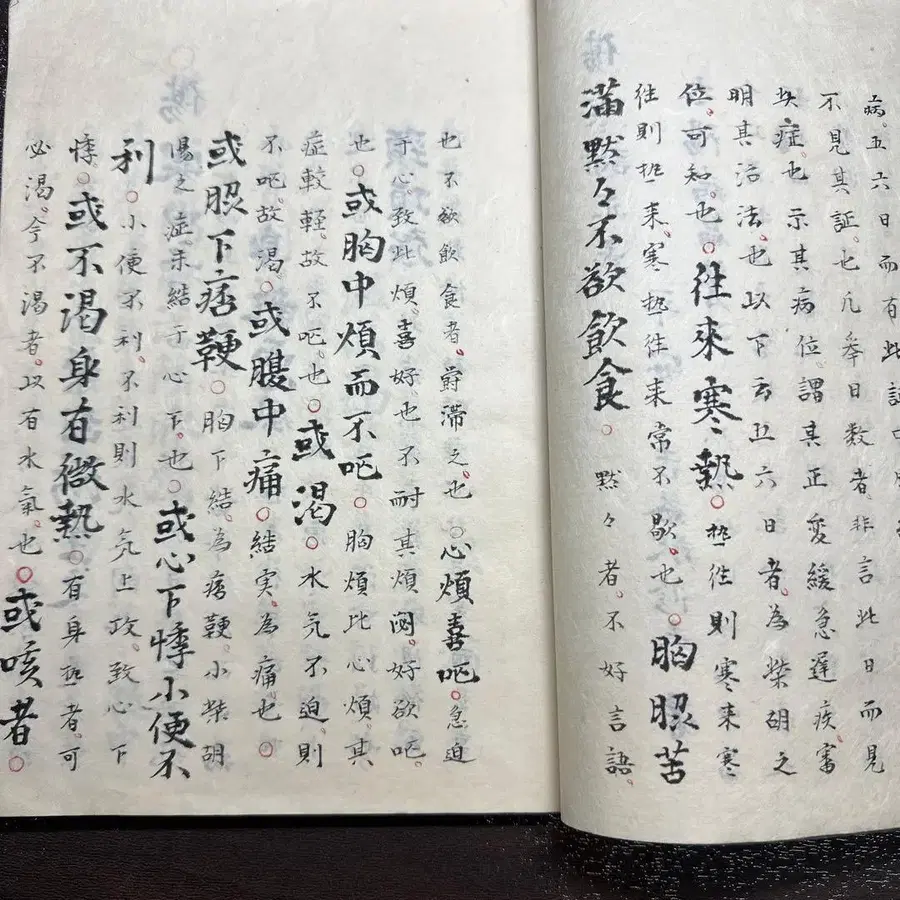 病五六日而有此証
不見其証也凡挙日数者非言此日而見
失症也示其病位謂其正変緩急遅疾審
明其治法也以下云五六日者為柴胡之
位可知也往来寒熱熱往則寒来寒
往則熱来寒熱往来常不歇也胸脇苦
満黙々不欲飲食黙々者不好言語
也不欲飲食者欝滞之也心煩喜呕急迫
于心致此煩喜好也不耐其煩悶好欲呕
也或胸中煩而不呕胸煩比心煩其
症軽故不呕也或渴水気不迫則
不呕故渴或腹中痛結実為痛也
或脇下痞鞕胸下結為痞鞕小柴胡
湯之症未結于心下也或心下悸小便不
利小便不利不利則水気上攻致心下
悸或不渴身有微熱有身熱者可
必渴今不渴者以有水氣也或咳者